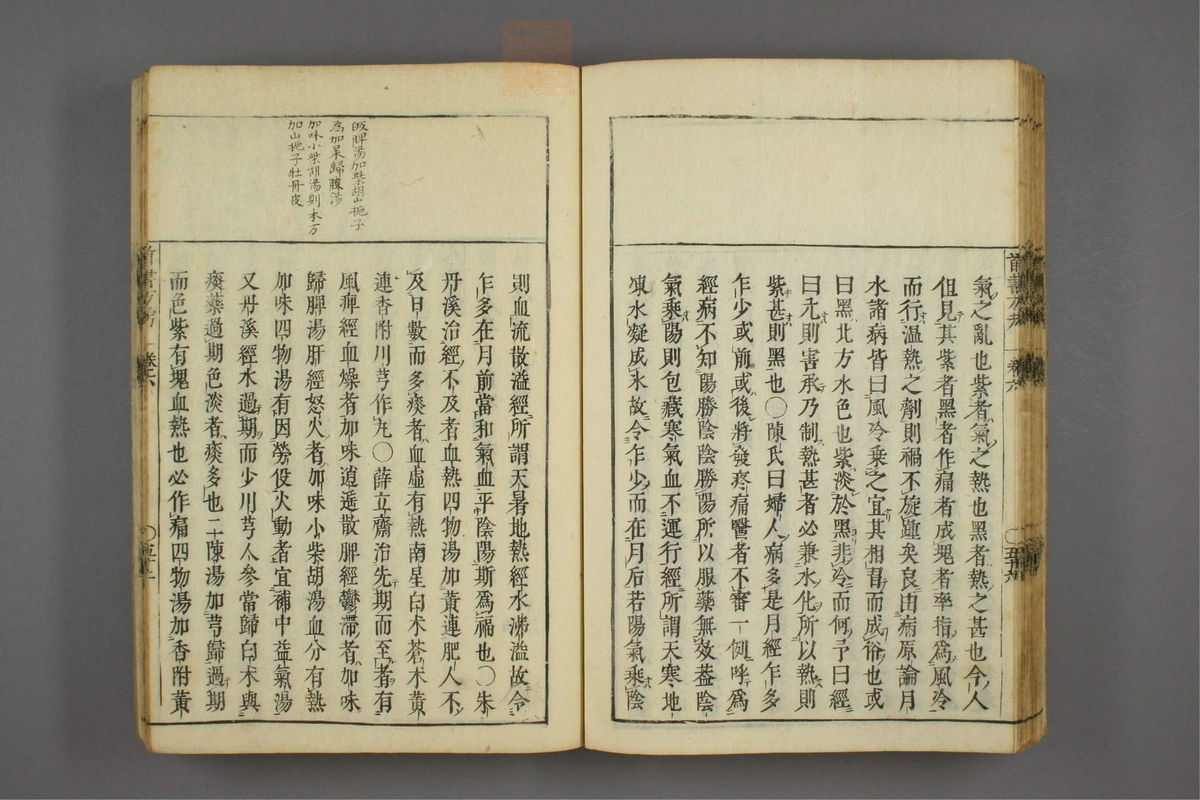 氣之亂也紫者氣之熱也黑者熱之甚也今人
但見其紫者黑者作痛者成塊者率指爲風冷
而行溫熱之劑則禍不旋踵矣良由病原論月
水諸病皆曰風冷乘之宜其相習而成俗也或
曰黑北方水色也紫淡於黑非冷而何予曰經
曰亢則害承乃制熱甚者必兼水化所以熱則
紫甚則黑也〇陳氏曰婦人病多是月經乍多
乍少或前或後將發疼痛醫者不審一例呼爲
經病不知陽勝陰陰勝陽所以服藥無效葢陰
氣乘陽則包藏寒氣血不運行經所謂天寒地
凍水凝成氷故令乍少而在月后若陽氣乘陰
則血流散溢經所謂天暑地熱經水沸溢故令
乍多在月前當和氣血平陰陽斯爲福也〇朱
丹溪治經不及者血熱四物湯加黃連肥人不
及日數而多痰者血虛有熱南星白朮蒼朮黃
連香附川芎作丸〇薛立齋治先期而至者有
風脾經血燥者加味逍遥散脾經鬱滯者加味
歸脾湯肝經怒火者加味小柴胡湯血分有熱
加味四物湯有因勞役火動者宜補中益氣湯
又丹溪經水過期而少川芎人參當歸白朮與
痰藥過期色淡者痰多也二陳湯加芎歸過期
而色紫有塊血熱也必作痛四物湯加香附黃
皈脾湯加柴胡山梔子
為加味歸脾湯
加味小柴胡湯則本方
加山梔子牡丹皮
卷六